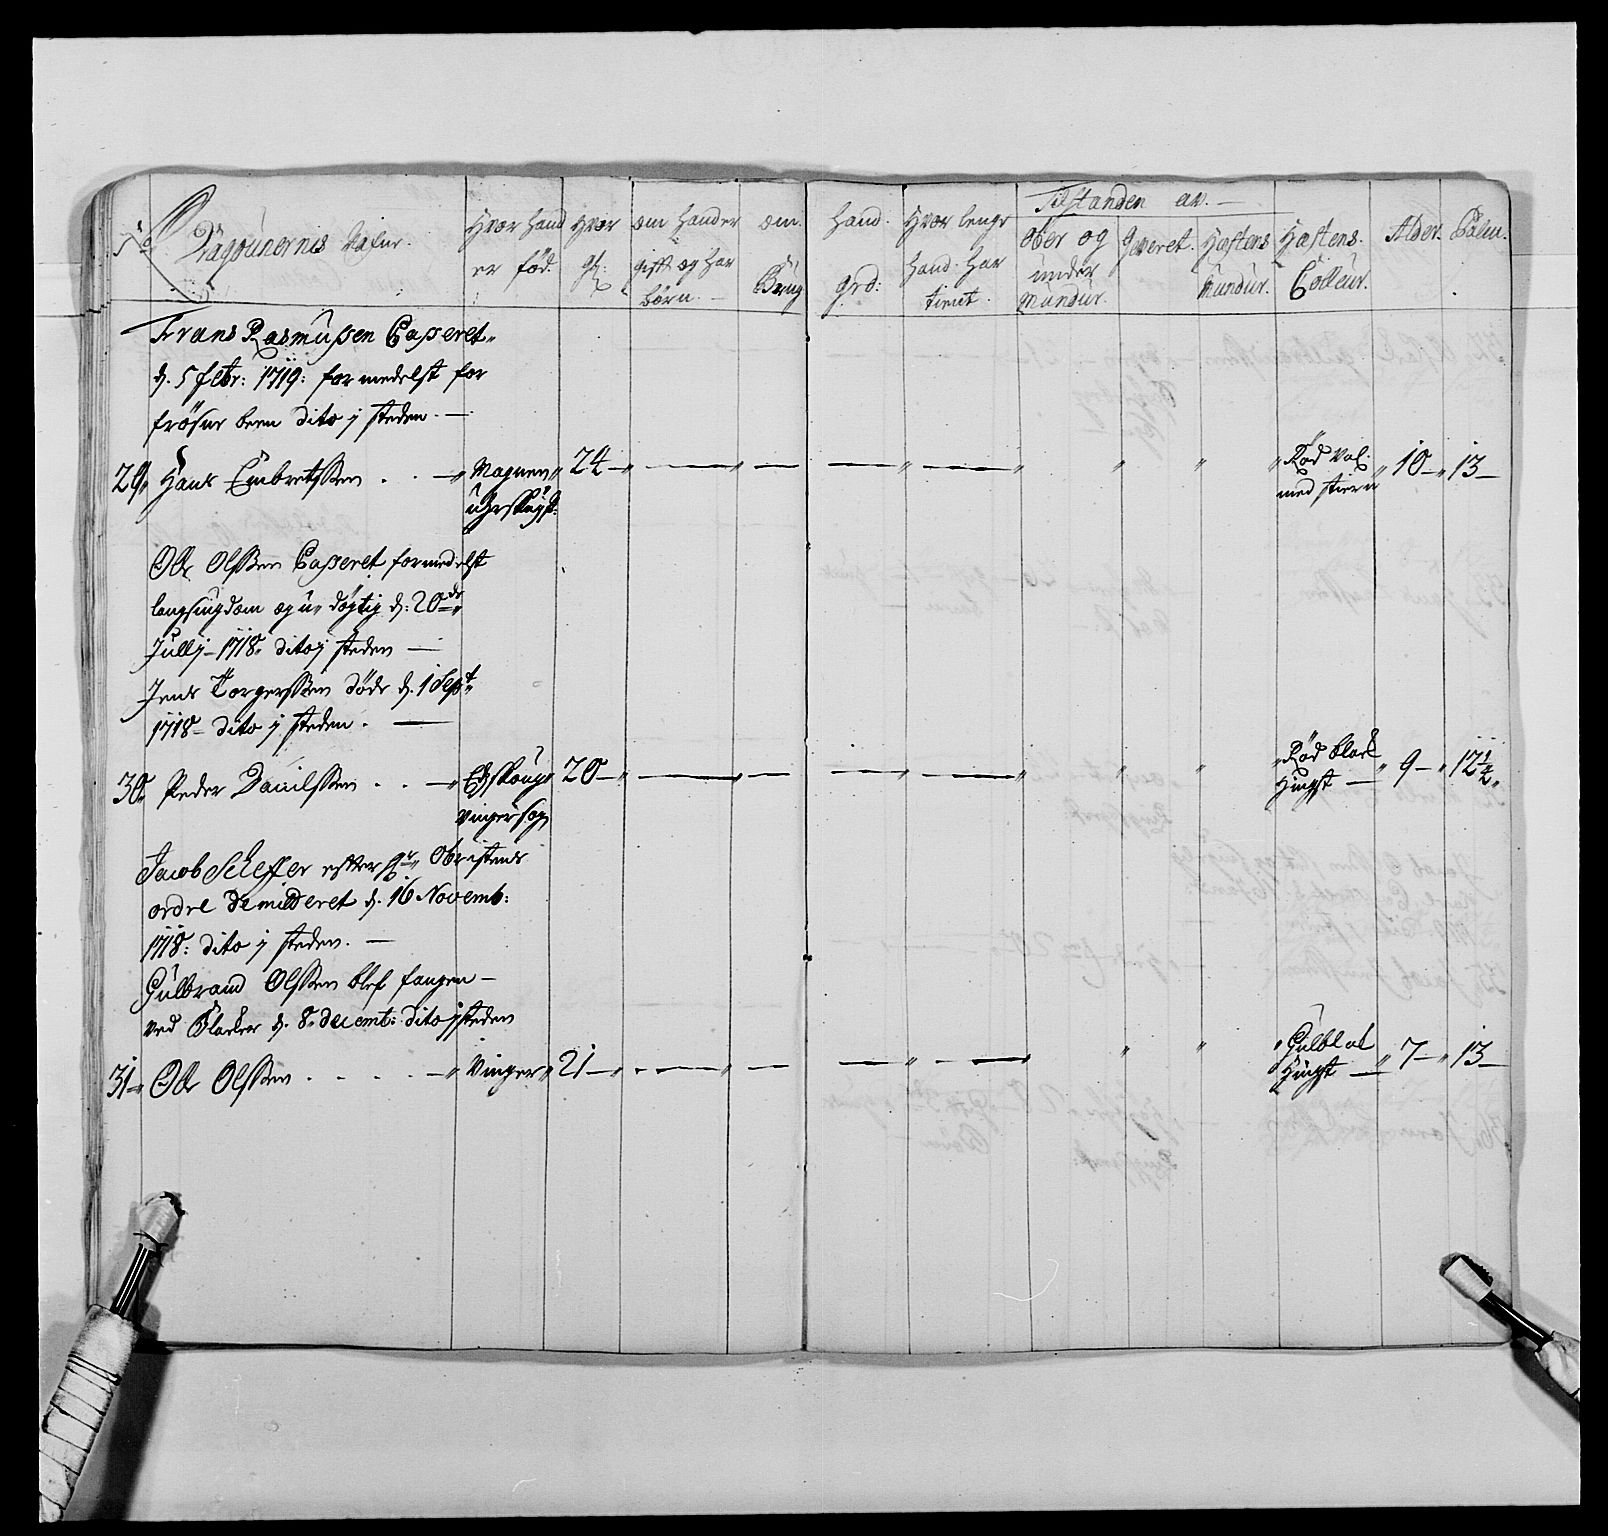 No Dragounernis Nafne.
Hvor hand er fød.
Hvor gl:
om hand er gift og har børn.
om. Brug
hand. grd:
Hvor lenge hand har tient.
Tilstanden av.
Ober og under Mundur.
Geveret.
Hæstens Mundur.
Hæstens Colleur.
Alder.
Palm.
Frans Rasmussen Casseret
d. 5 febr: 1719: formedelst for
frösne been dito j steden.
29 Hans Embretssen Magnor 24 Rød val. med stiern 10 13
Ole Olssen Casseret formedelst
langsingdom og u-døgtig d: 20de
Jullj 1718 dito j steden
Jens Torgerssen døde d. 1 Sept
1718 dito j steden.
30 Peder Danilssen Edskoug 20 Rød blak Hingst 9 12½
Vinger sogn
Jacob Scheffer efter Hr Obristens
ordre demitteret d. 16 Novemb:
1718: dito j steden.
Gulbrand Olssen blef fangen
ved Blacker d. 8 decemt: dito j steden
31 Ole Olssen Vinger 21 Gulblak Hingst 7 13